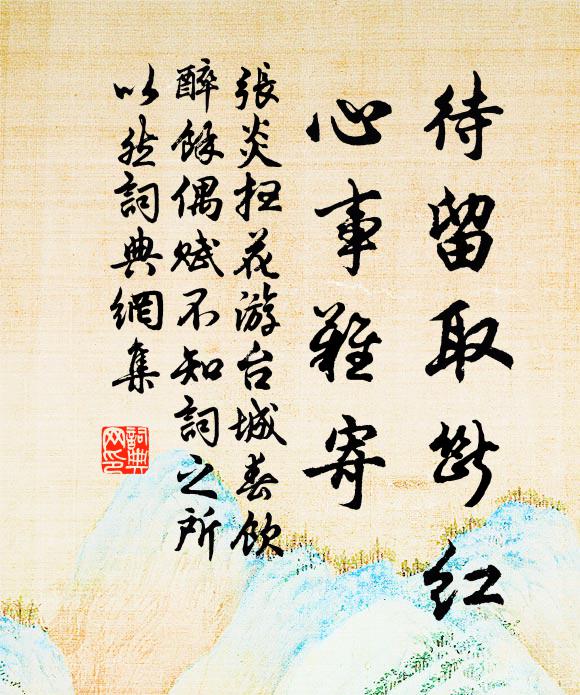 待留取断红
心事難寄
張炎扫花游台城春飲
醉餘偶赋不知詞之所
以然詞典網集
詞典
网印